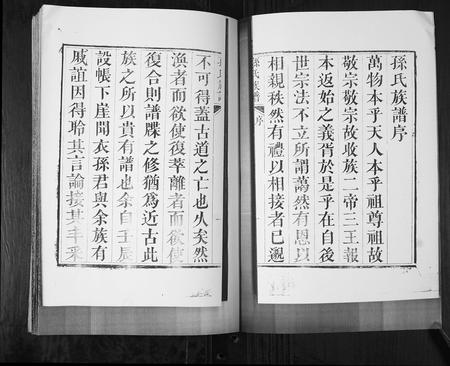 孫氏族譜序
萬物本乎天人本乎祖尊祖故
敬宗敬宗故收族二帝三王報
本返始之義胥於是乎在自後
世宗法不立所謂藹然有恩以
相親秩然有禮以相接者已邈
孫氏族譜 序
不可得蓋古道之亡也久矣然
渙者而欲使復萃離者而欲使
復合則譜牒之修猶為近古此
族之所以貴有譜也余自壬辰
設帳下崖間衣孫君與余族有
戚誼因得聆其言論接其丰采